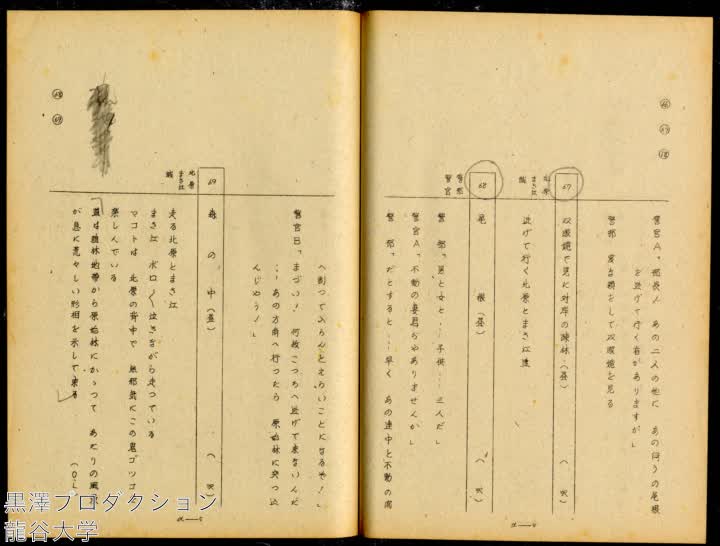 66
67
68
警官A「部長！ あの二人の他に あの向うの尾根
を逃げて行く者がありますが」
警部 宵吉顔をして双眼鏡を見る
67
北原
まさ江
双眼鏡で見た対岸の疎林（昼）
逃げて行く北原とまさ江達
68
警部
警官
尾根（昼）
警部「男と女と……子供……三人だ」
警官A「不動の妻君ぢやありませんか」
警部「だとすると……早く あの連中と不動の間
α—4
へ割つて入らんとえらいことになるぞ！」
警官B「まづい！ 何故こつちへ逃げて来ないんだ
……あの方角へ行つたら 原始林に突つ込
んじやう！」
69
北原
まさ江
森の中（昼）
走る北原とまさ江
まさ江 ボロ〱泣きながら走つている
マコトは 北原の背中で 無邪気にこの鬼ゴツコ
楽しんでいる
道は疎林地帯から原始林にかゝつて あたりの風景
が急に荒々しい形相を示して来る
（O.L）
68
69
α—5
黒澤プロダクション
龍谷大学